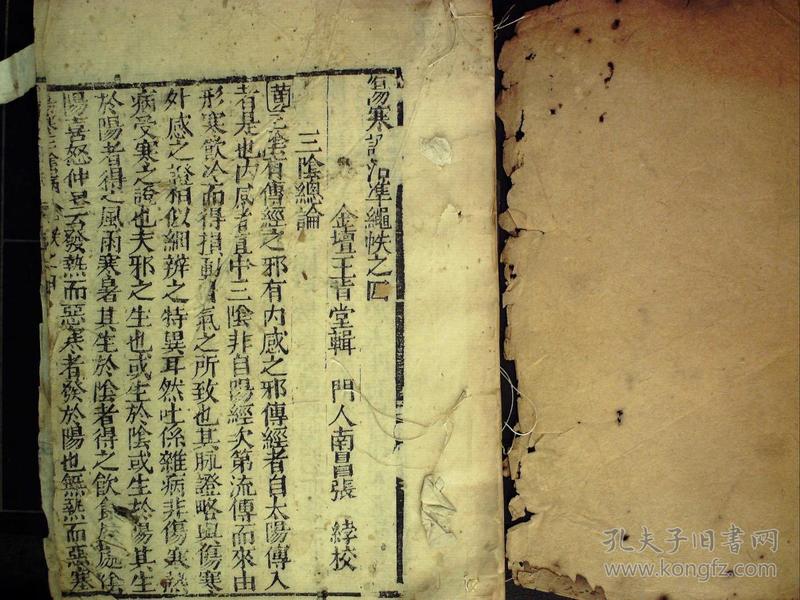 傷寒證治準繩帙之四
金壇王肯堂輯 門人南昌張 綍校
三陰總論
三陰有傳經之邪有內感之邪傳經者自太陽傳入
者是也內感者直中三陰非自陽經次第流傳而來由
形寒飲冷而得損動 氣之所致也其脉證略與傷寒
外感之證相似細辨之特異耳然此係雜病非傷寒
病受寒之證也夫邪之生也或生於陰或生於陽其生
於陽者得之風雨寒暑其生於陰者得之飲食居處陰
陽喜怒仲景云發熱而惡寒者發於陽也無熱而惡寒
孔夫子旧书网
www.kongfz.com